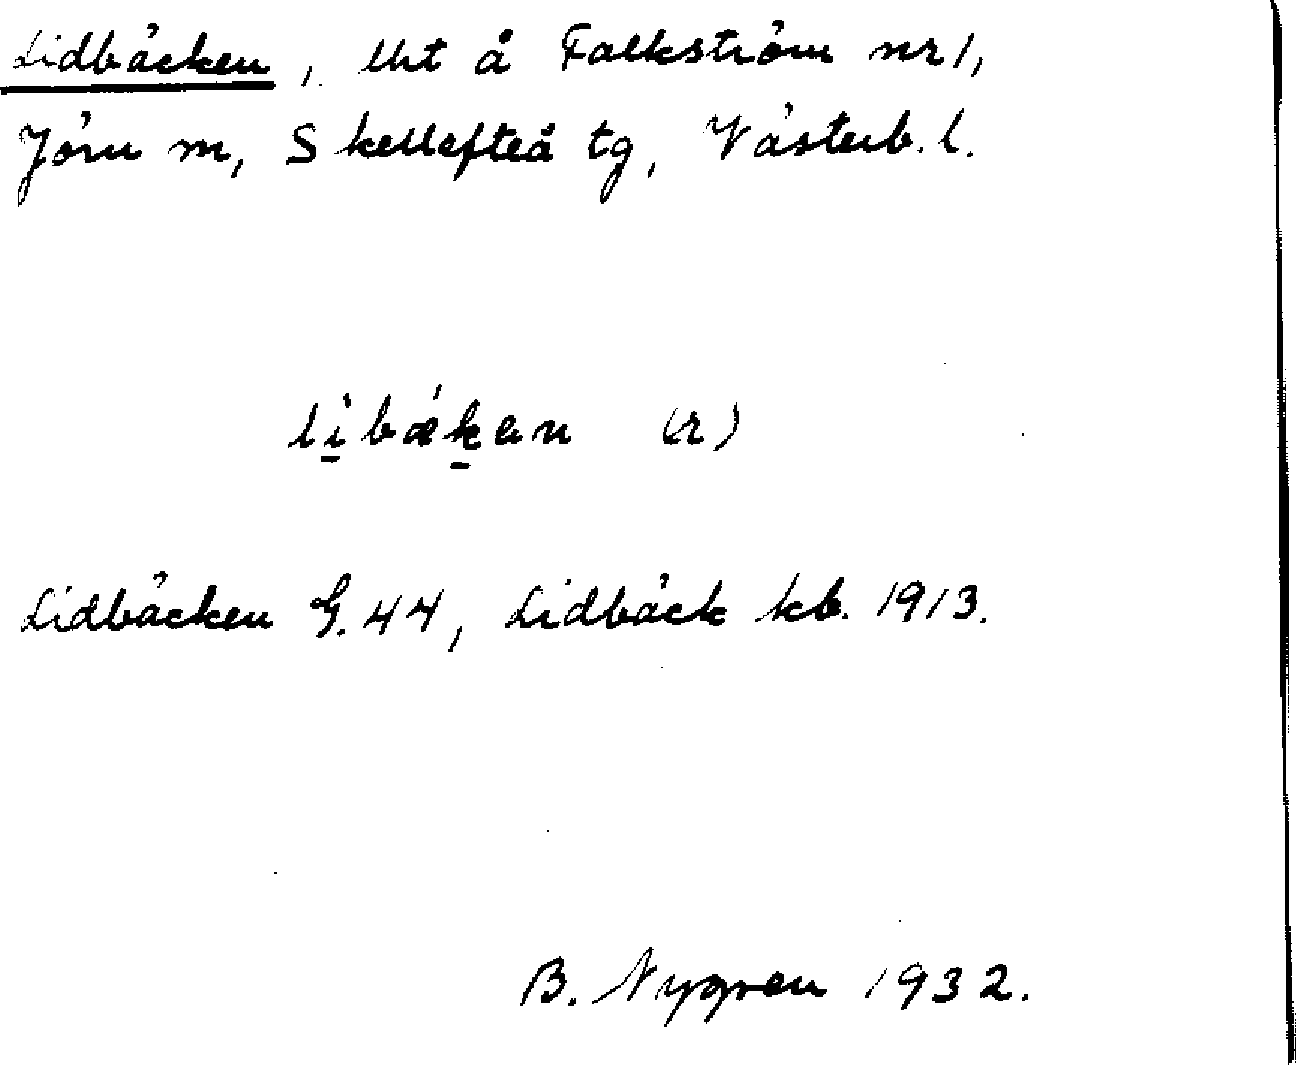 Lidbäcken, lht å Falkström nr 1,
Jörn m, Skellefteå tg, Västerb. l.
lìbǽkan (r)
Lidbäcken G. 44, Lidbäck kb. 1913.
B. Nygren 1932.